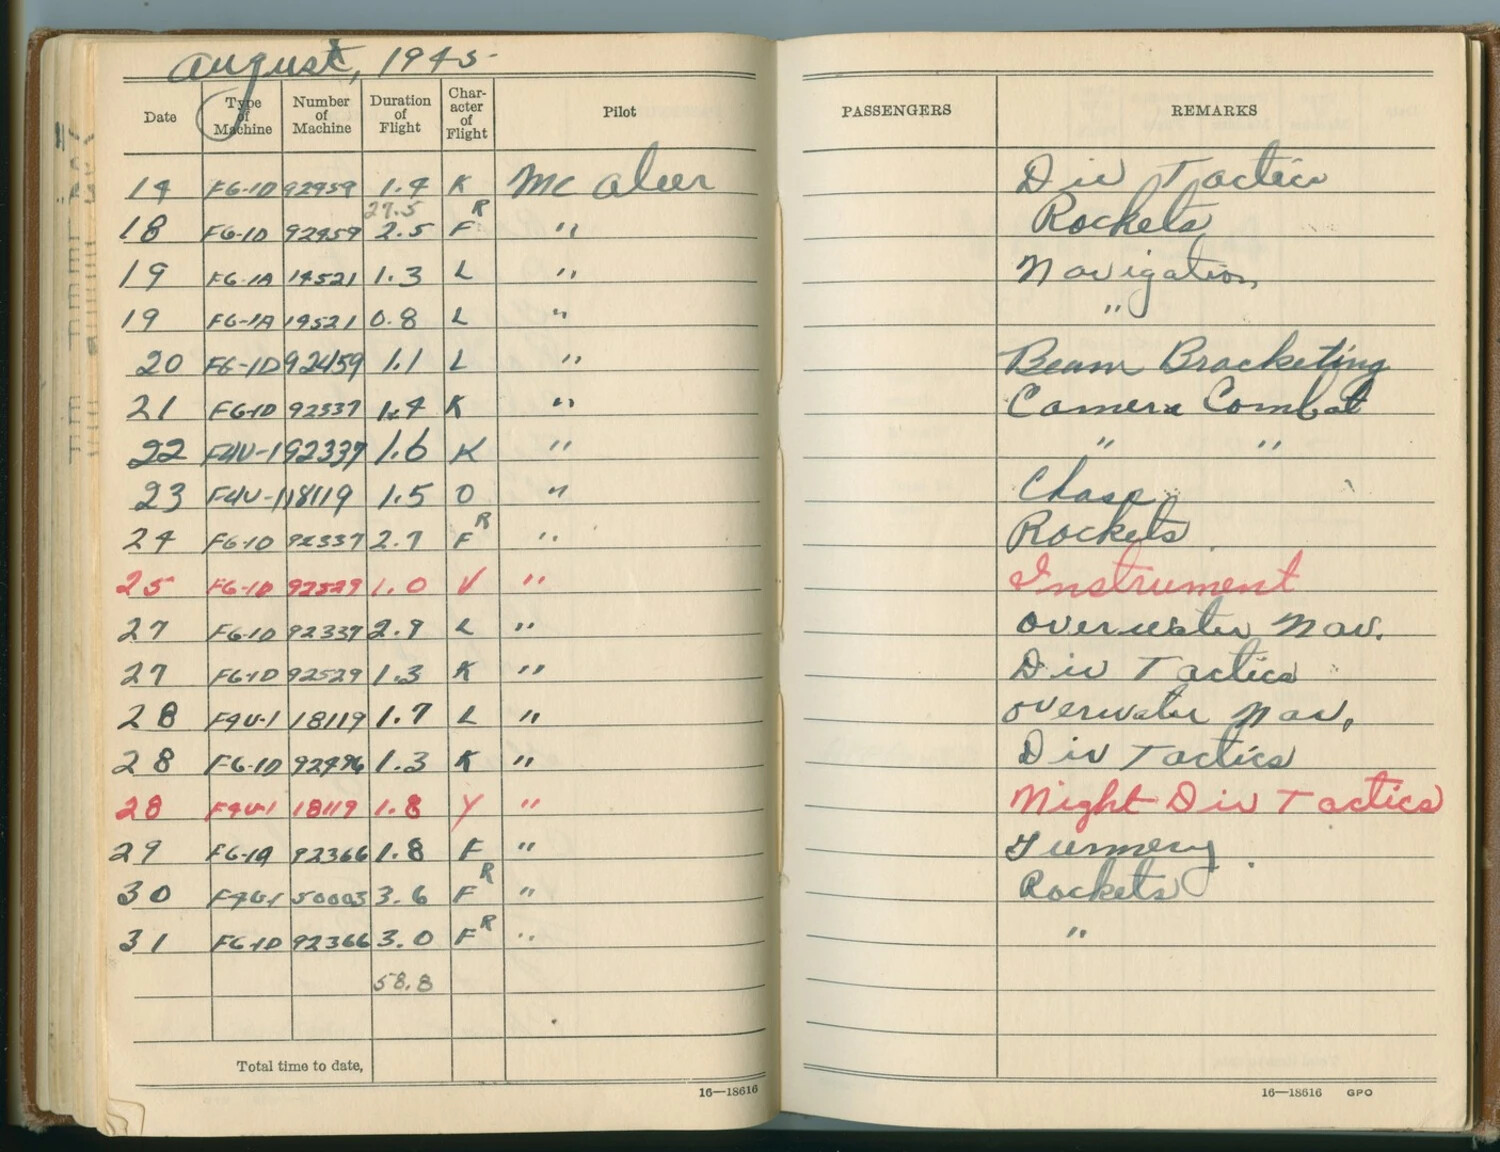 August, 1945
Date Type of Machine Number of Machine Duration of Flight Character of Flight Pilot PASSENGERS REMARKS
14 FG-1D 92459 1.4 K McAleer Div Tactics
27.5
18 FG-1D 92459 2.5 F R " Rockets
19 FG-1A 14521 1.3 L " Navigation
19 FG-1A 14521 0.8 L " "
20 FG-1D 92459 1.1 L " Beam Bracketing
21 FG-1D 92337 1.4 K " Camera Combat
22 F4U-1 92337 1.6 K " " "
23 F4U-1 18119 1.5 O " Chase
24 FG-1D 92337 2.7 F R " Rockets
25 FG-1D 92529 1.0 V " Instrument
27 FG-1D 92337 2.9 L " Overwater Nav.
27 FG-1D 92529 1.3 K " Div Tactics
28 F4U-1 18119 1.7 L " Overwater Nav.
28 FG-1D 92496 1.3 K " Div Tactics
28 F4U-1 18119 1.8 Y " Night Div Tactics
29 FG-1A 92366 1.8 F "
30 F4U-1 50003 3.6 F R " Rockets
31 FG-1D 92366 3.0 F R " "
58.8
Total time to date,
16—18616 16—18616 GPO